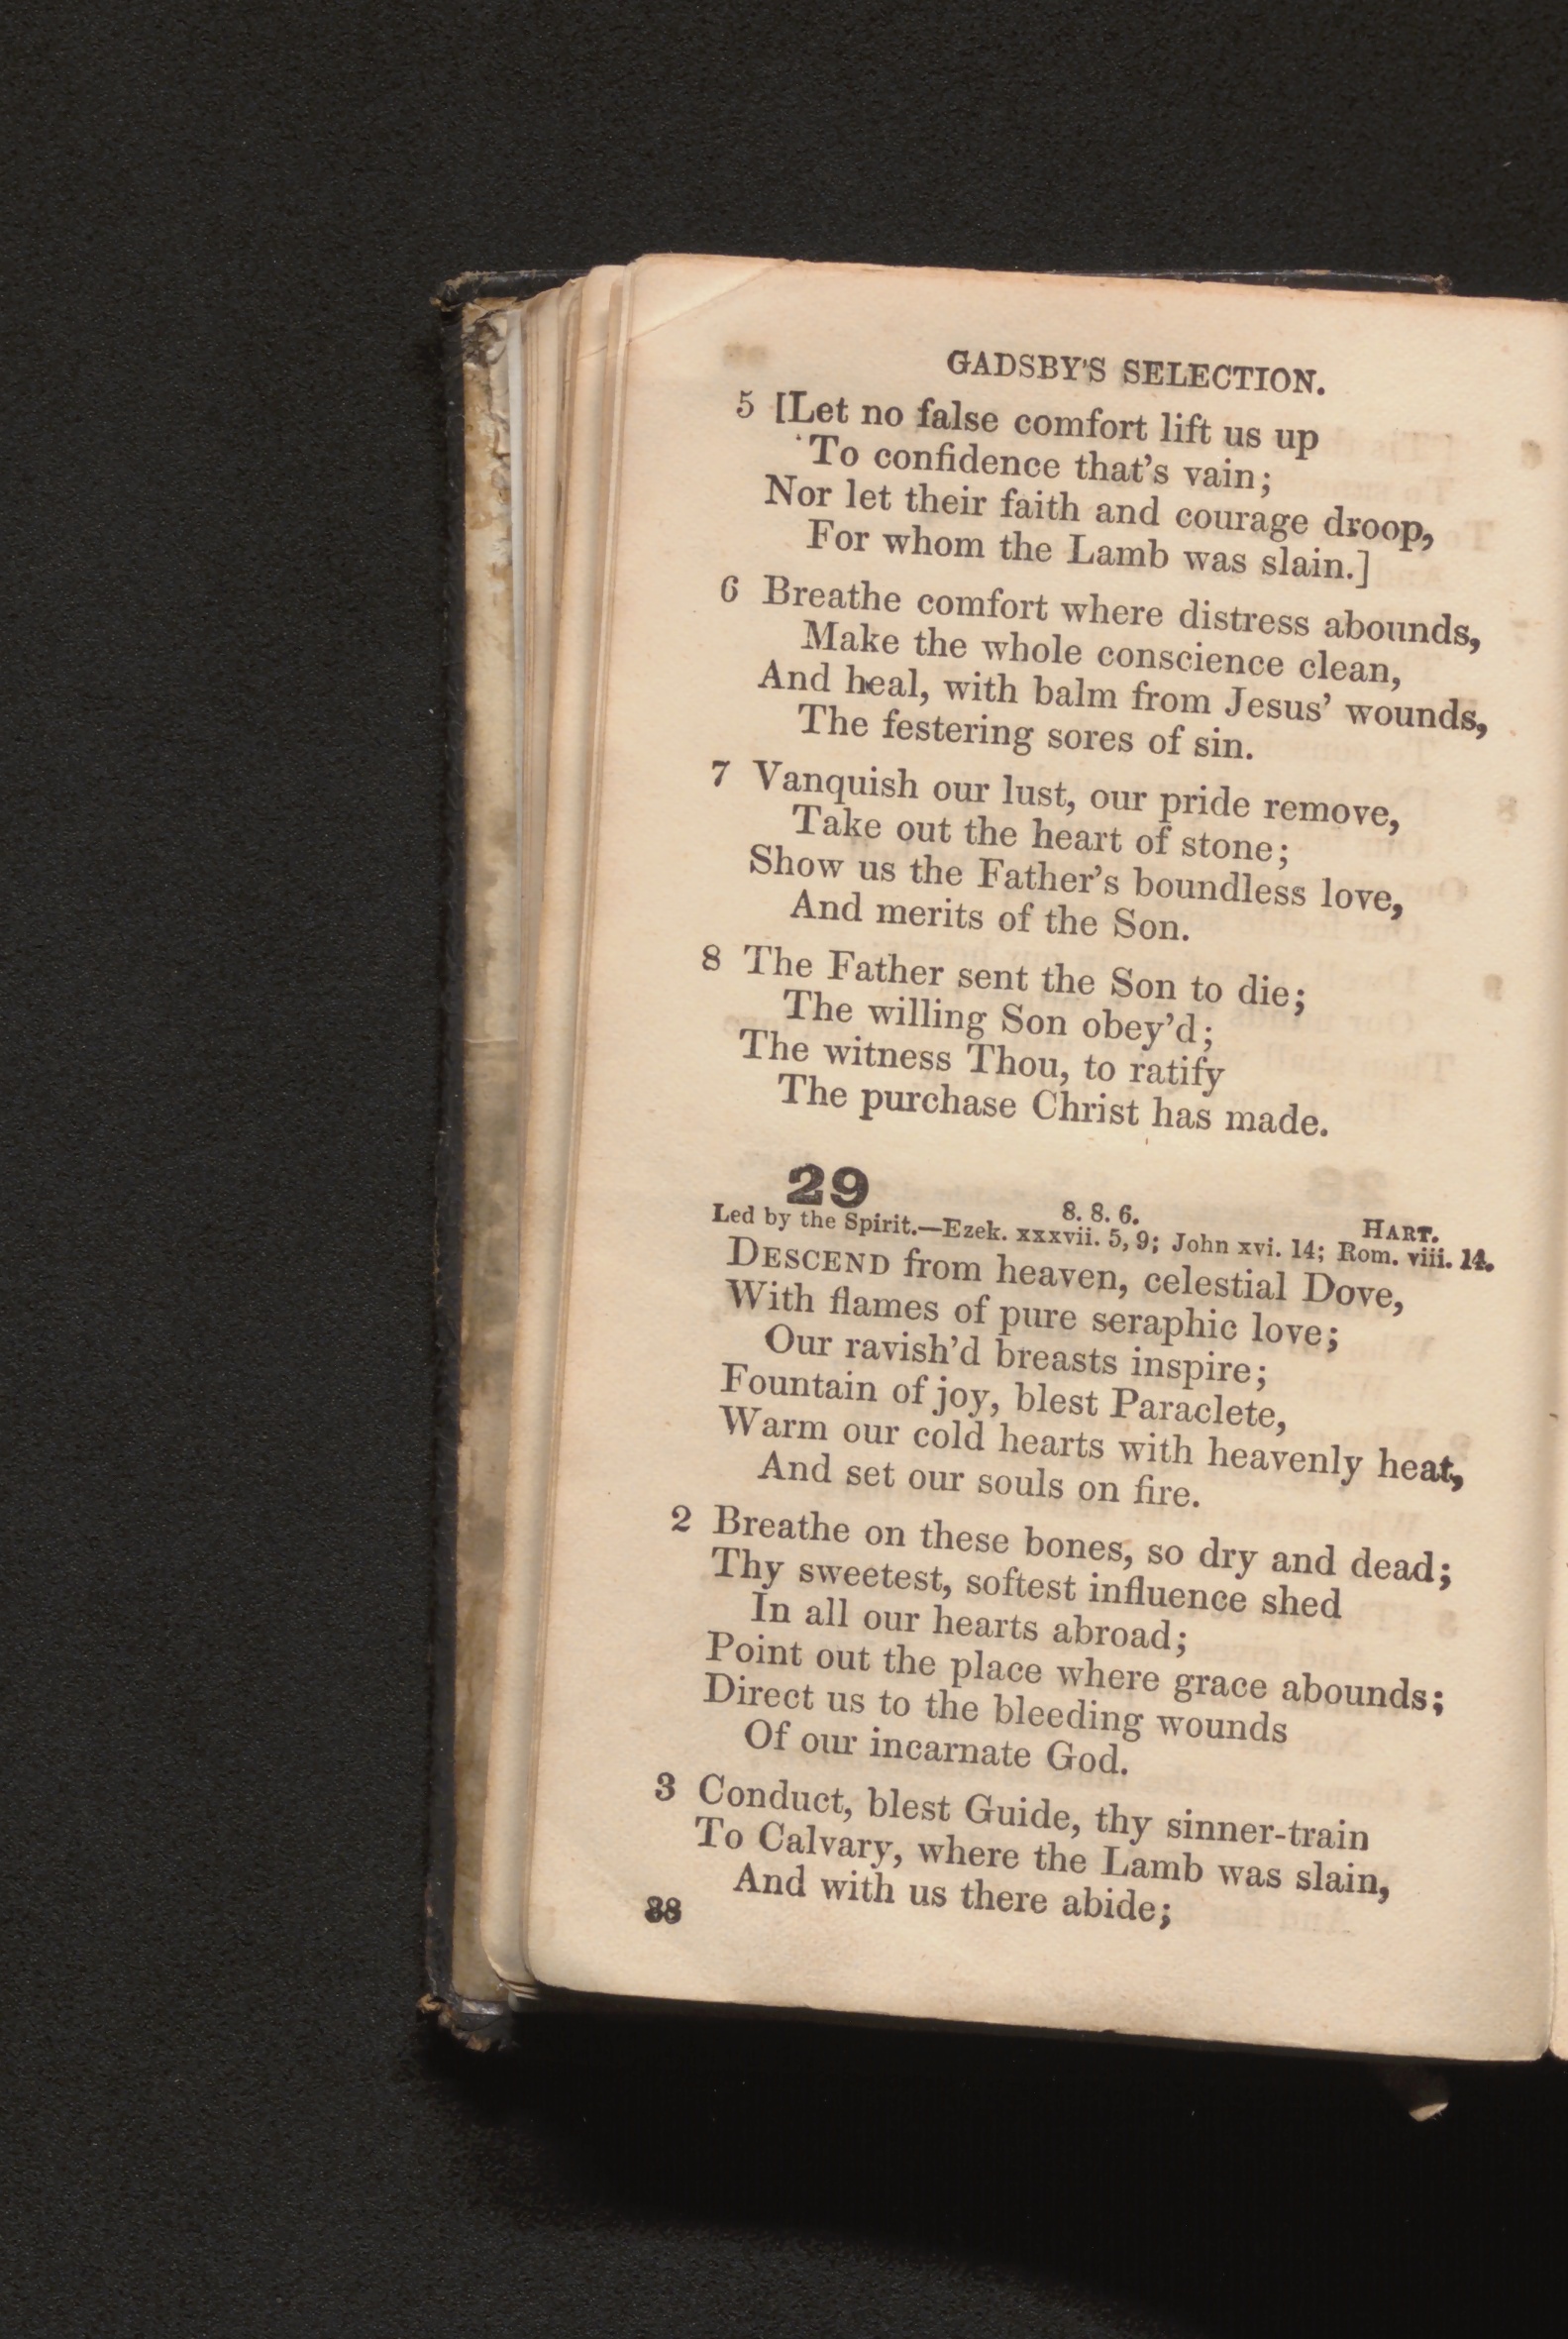 GADSBY'S SELECTION.
5 [Let no false comfort lift us up
To confidence that's vain;
Nor let their faith and courage droop,
For whom the Lamb was slain.]
6 Breathe comfort where distress abounds,
Make the whole conscience clean,
And heal, with balm from Jesus' wounds,
The festering sores of sin.
7 Vanquish our lust, our pride remove,
Take out the heart of stone;
Show us the Father's boundless love,
And merits of the Son.
8 The Father sent the Son to die;
The willing Son obey'd;
The witness Thou, to ratify
The purchase Christ has made.
29 8. 8. 6. HART.
Led by the Spirit.—Ezek. xxxvii. 5, 9; John xvi. 14; Rom. viii. 14.
DESCEND from heaven, celestial Dove,
With flames of pure seraphic love;
Our ravish'd breasts inspire;
Fountain of joy, blest Paraclete,
Warm our cold hearts with heavenly heat,
And set our souls on fire.
2 Breathe on these bones, so dry and dead;
Thy sweetest, softest influence shed
In all our hearts abroad;
Point out the place where grace abounds;
Direct us to the bleeding wounds
Of our incarnate God.
3 Conduct, blest Guide, thy sinner-train
To Calvary, where the Lamb was slain,
And with us there abide;
38